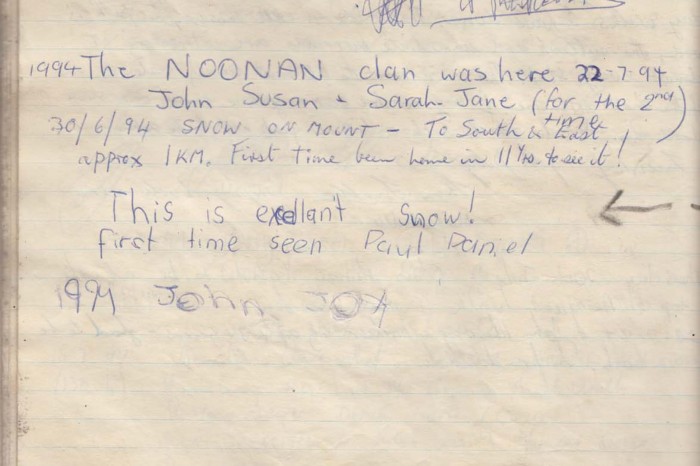 1994 The NOONAN clan was here 22-7-94
John Susan + Sarah-Jane (for the 2nd time)
30/6/94 SNOW ON MOUNT - To South & East
approx 1KM. First time been home in 11 Yrs. to see it!
This is exellan't snow!
first time seen Paul Daniel
1994 John JOY